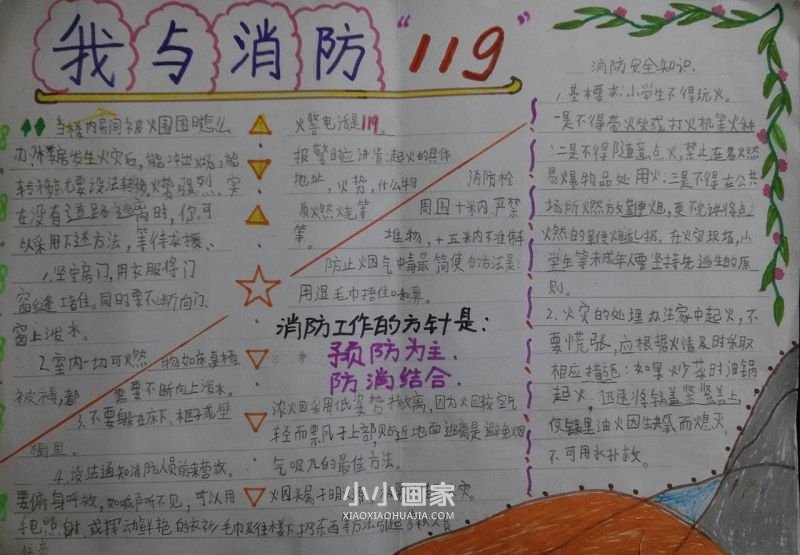 我与消防“119”
当楼内房间被火围困时怎么
办:
转移
在没有道路逃离时,你可
以采用下述方法,等待求援、
1.坚守房门,用衣服将门
窗缝堵住。同时要不断向门、
窗上泼水。
2.室内一切可燃物如床桌椅
被褥,都需要不断向上泼水。
3.不要躲在床下、柜子或壁
橱里。
4.设法通知消防人员前来营救。
要俯身呼救,如喊声听不见,可以用
手电照射,或挥动鲜艳的衣衫、毛巾及往楼下扔东西等方法引起
火警电话是119
报警时应讲清:起火的具体
地址,火势,什么物
质燃烧等
等。
消防栓
周围十米内,严禁
堆物,十五米内不准停车
防止烟气中毒最简便的方法是:
用湿毛巾捂住口鼻。
消防工作的方针是:
预防为主、
防消结合、
浓烟采用低姿势撤离,因为火因较空气
轻而飘于上部贴近地面逃离是避免烟
气吸入的最佳方法。
烟头
小小画家
XIAOXIAOHUAJIA.COM
消防安全知识、
1.基本要求:小学生不得玩火。
一是不得带火柴或打火机等火种
:二是不得随意点火,禁止在易燃
易爆物品处用火:三是不得在公共
场所燃放鞭炮,更不允许将点
燃的鞭炮乱扔。在火灾现场,小
学生等未成年人要坚持先逃生的原
则。
2.火灾的处理办法家中起火,不
要慌张,应根据火情及时采取
相应措施:如果炒菜时油锅
起火,迅速将锅盖紧紧盖上,
使锅里油火因缺氧而熄灭,
不可用水扑救。